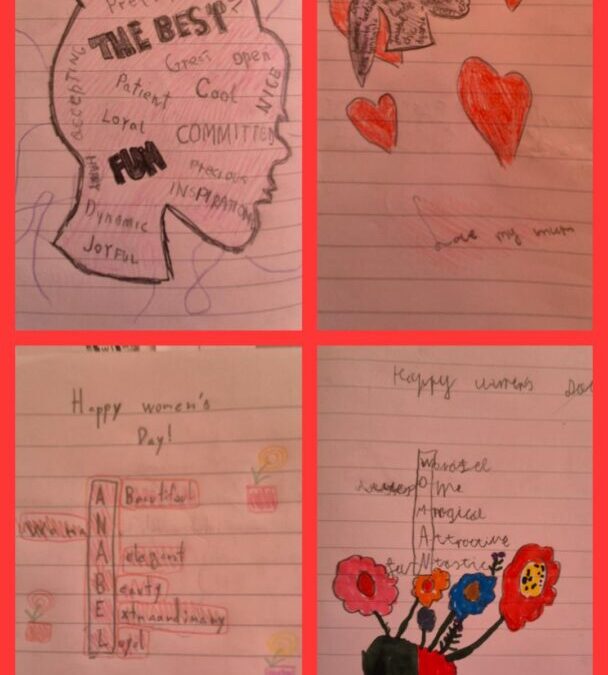 THE BEST
Great Open
ACCEPTING
Patient Cool NICE
Loyal COMMITTED
FUN Precious
INSPIRATION
Dynamic
JOYFUL
Love my mum
Happy women's
Day!
A Beautiful
N
A elegant
B Eauty
E xtraordinary
L oyal
Happy
W
O me
M agical
A ttractive
fa N tastic